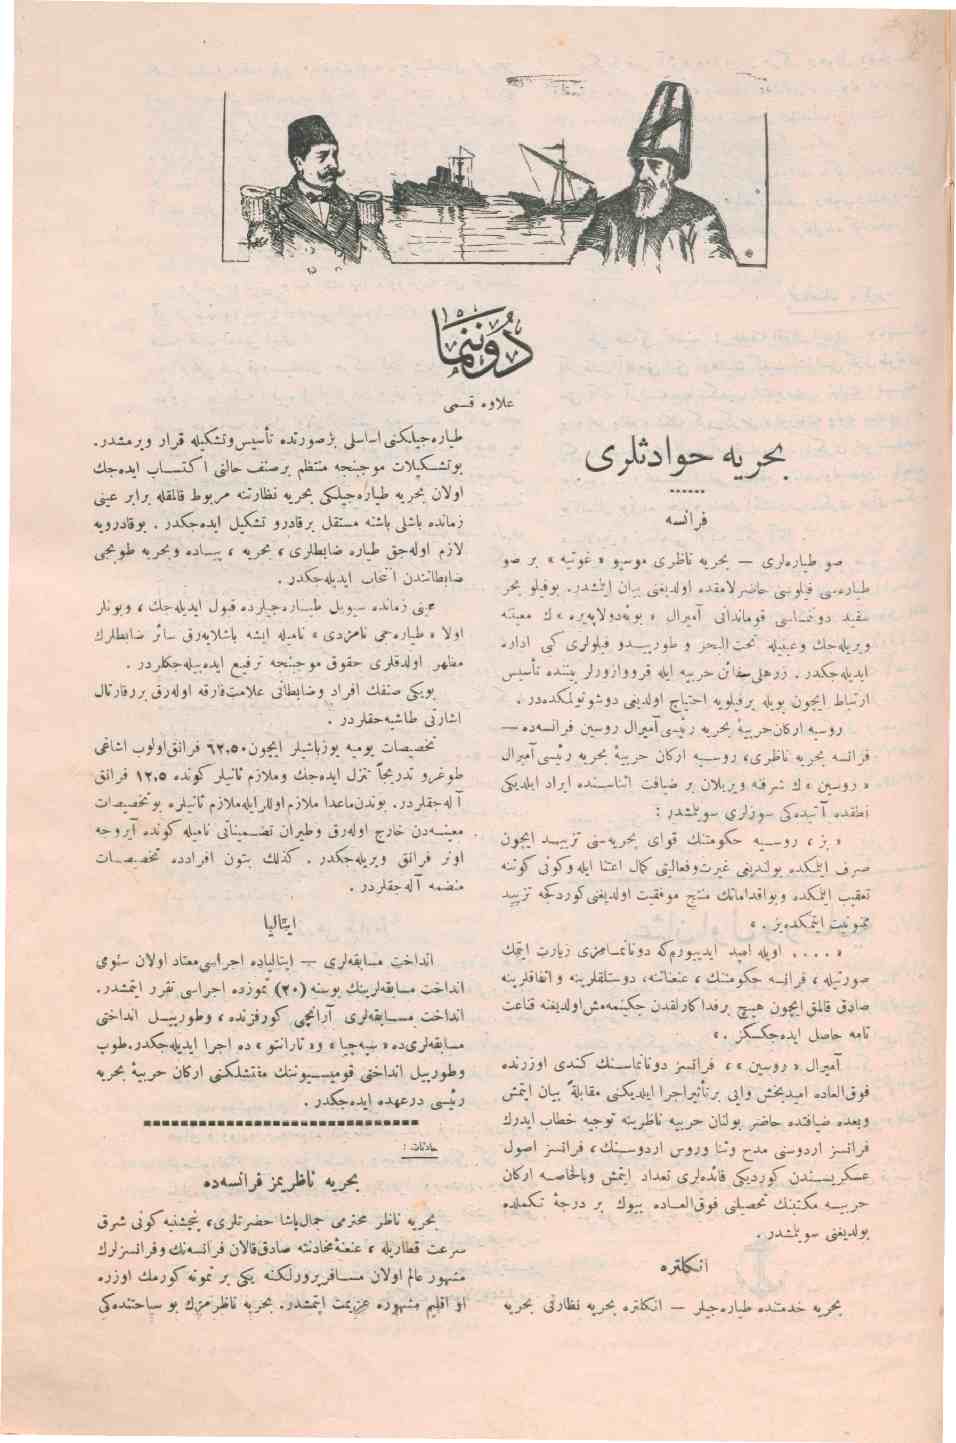 دوننما
علاوه قسمى
بحريه حوادثلرى
فرانسه
صو طياره‌لرى — بحريه ناظرى موسيو « غوتيه » بر صو
طياره‌سى فيلوسى حاضرلامقده اولديغنى بيان ايتمشدر. بوفيلو بحر
سفيد دوننماسى قوماندانى آميرال « بوئه‌دولاپه‌يره »ك معيتنه
ويريله‌جك وعينيله تحت‌البحر و طورپيدو فيلولرى كبى اداره
ايديله‌جكدر. زرهلى سفائن حربيه ايله قرووازورلر بيننده تأسيس
ارتباط ايچون بويله برفيلويه احتياج اولديغى دوشونولمكده‌در.
روسيه اركان‌حربيهٔ بحريه رئيسى آميرال روسين فرانسه‌ده —
فرانسه بحريه ناظرى، روسيه اركان حربيهٔ بحريه رئيسى آميرال
« روسين »ك شرفنه ويريلان بر ضيافت اثناسنده ايراد ايلديكى
نطقده آتيده‌كى سوزلرى سويلمشدر :
« بز ، روسيه حكومتنك قواى بحريه‌سنى تزييد ايچون
صرف ايتمكده بولنديغى غيرت‌وفعاليتى كمال اعتنا ايله وكونى كوننه
تعقيب ايتمكده وبواقداماتك منتج موفقيت اولديغنى كوردكجه تزييد
ممنونيت ايتمكده‌يز. »
« .... اويله اميد ايدييورم‌كه دوناتمامزى زيارت ايتمك
صورتيله ، فرانسه حكومتنك ، عنعناتنه، دوستلقلرينه و اتفاقلرينه
صادق قالمق ايچون هيچ برفداكارلقدن چكينمه‌مش‌اولديغنه قناعت
تامه حاصل ايده‌جكسكز. »
آميرال « روسين » ، فرانسز دوناتماسنك كندى اوزرنده
فوق‌العاده اميدبخش وايى برتأثيراجرا ايلديكنى مقابلةً بيان ايتمش
وبعده ضيافتده حاضر بولنان حربيه ناظرينه توجيه خطاب ايدرك
فرانسز اردوسنى مدح وثنا وروس اردوسينك ، فرانسز اصول
عسكريسندن كورديكى فائده‌لرى تعداد ايتمش وبالخاصه اركان
حربيه مكتبنك تحصيلى فوق‌العاده بيوك بر درجهٔ تكملده
بولديغنى سويلمشدر.
انكلتره
بحريه خدمتنده طياره‌جيلر — انكلتره بحريه نظارتى بحريه
طياره‌جيلكنى اساسلى برصورتده تأسيس‌وتشكيله قرار ويرمشدر.
بوتشكيلات موجبنجه منتظم برصنف حالنى اكتساب ايده‌جك
اولان بحريه طياره‌جيلكى بحريه نظارتنه مربوط قالمقله برابر عينى
زمانده باشلى باشنه مستقل برقادرو تشكيل ايده‌جكدر. بوقادرويه
لازم اوله‌جق طياره ضابطلرى ، بحريه ، پياده وبحريه طوپجى
ضابطاتندن انتخاب ايديله‌جكدر.
عينى زمانده سيويل طياره‌جيلرده قبول ايديله‌جك ، وبونلر
اولا « طياره‌جى نامزدى » ناميله ايشه باشلايه‌رق سائر ضابطلرك
مظهر اولدقلرى حقوق موجبنجه ترفيع ايده‌بيله‌جكلردر.
بويكى صنفك افراد وضابطانى علامت‌فارقه اوله‌رق بررقارتال
اشارتى طاشيه‌جقلردر.
تخصيصات يوميه يوزباشيلر ايچون ٦٢,٥٠ فرانق‌اولوب اشاغى
طوغرو تدريجاً تنزل ايده‌جك وملازم ثانيلر كونده ١٢,٥ فرانق
آله‌جقلردر. بوندن‌ماعدا ملازم اوللرايله‌ملازم ثانيلره بوتخصيصات
معينه‌دن خارج اوله‌رق وطيران تضميناتى ناميله كونده آيروجه
اونر فرانق ويريله‌جكدر. كذلك بتون افرادده تخصيصات
منضمه آله‌جقلردر.
ايتاليا
انداخت مسابقه‌لرى — ايتالياده اجراسى‌معتاد اولان سنوى
انداخت مسابقه‌لرينك بوسنه (٢٠) تموزده اجراسى تقرر ايتمشدر.
انداخت مسابقه‌لرى آرانچى كورفزنده ، وطورپيل انداختى
مسابقه‌لرى‌ده « سپه‌چيا » و« تارانتو » ده اجرا ايديله‌جكدر. طوپ
وطورپيل انداختى قوميسيوننك مفتشلكنى اركان حربيهٔ بحريه
رئيسى درعهده ايده‌جكدر.
حادثات :
بحريه ناظريمز فرانسه‌ده
بحريه ناظر محترمى جمال‌پاشا حضرتلرى، پنجشنبه كونى شرق
سرعت قطاريله ، عنعنهٔ‌مخادنته صادق‌قالان فرانسه‌نك وفرانسزلرك
مشهور عالم اولان مسافرپرورلكنه يكى بر نمونه كورمك اوزره
او اقليم مشهوره عزيمت ايتمشدر. بحريه ناظرمزك بو سياحتنده‌كى